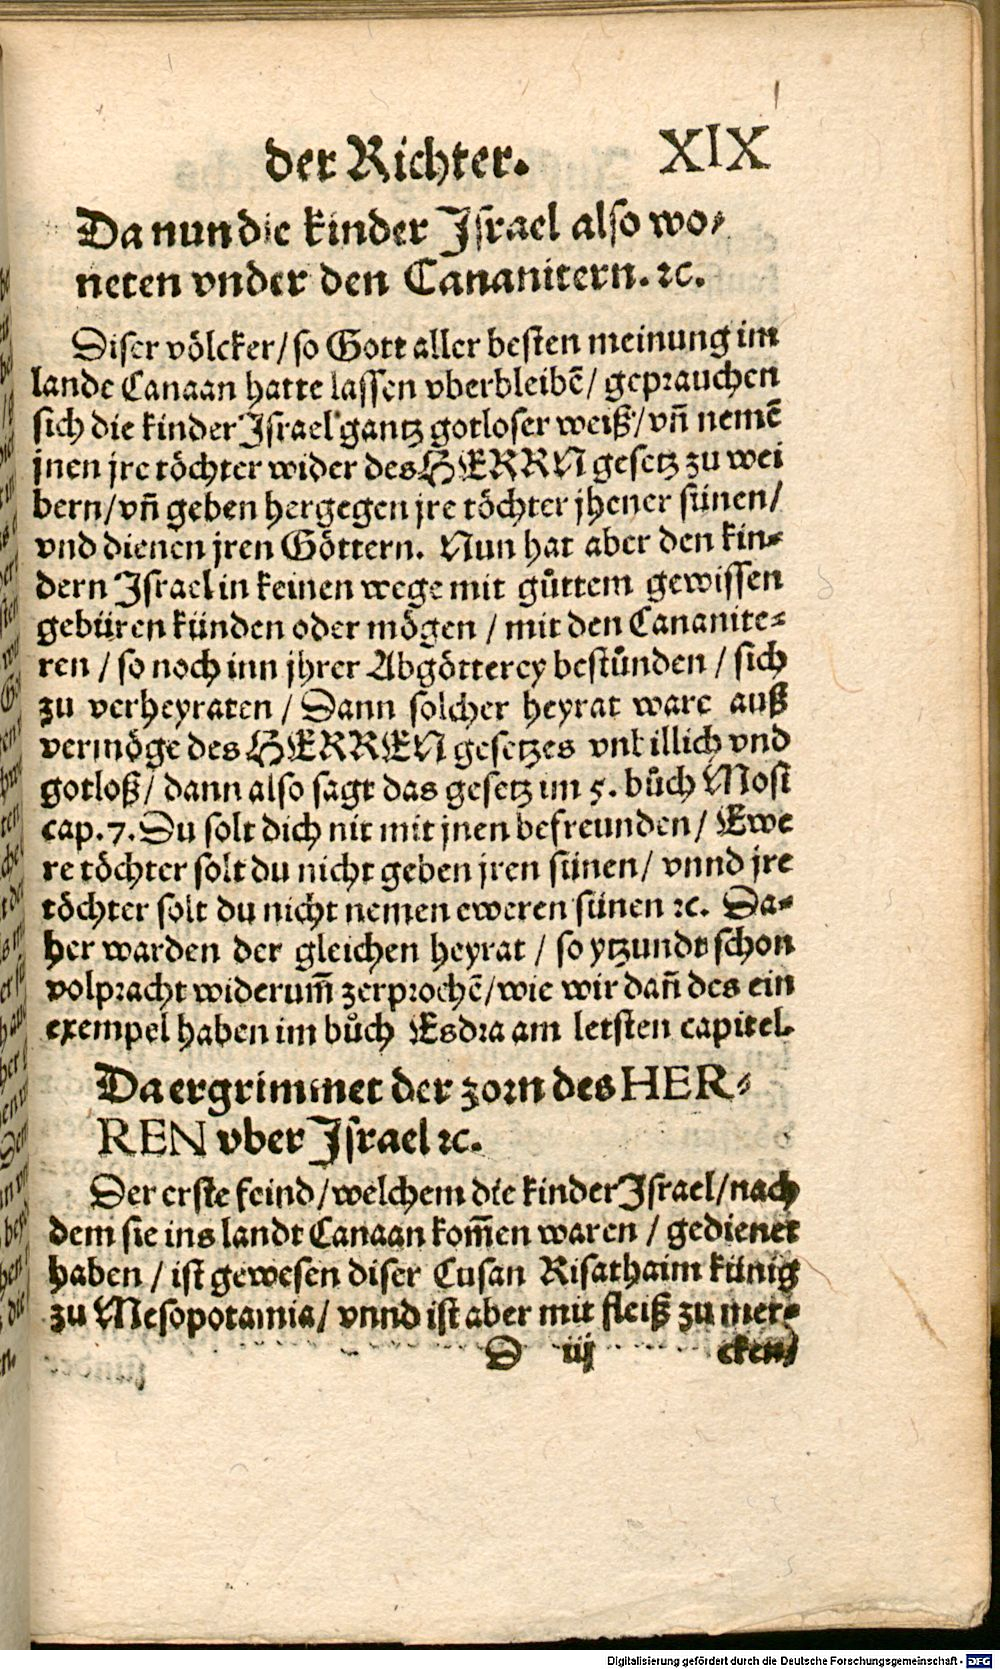 der Richter. XIX
Da nun die kinder Israel also wo-
neten vnder den Cananitern. ꝛc.
Diser völcker / so Gott aller besten meinung im
lande Canaan hatte lassen vberbleibē / geprauchen
sich die kinder Israel gantz gotloser weiß / vñ nemē
jnen jre töchter wider des HERRN gesetz zu wei
bern / vñ geben hergegen jre töchter jhener sünen /
vnd dienen jren Göttern. Nun hat aber den kin-
dern Israel in keinen wege mit gůttem gewissen
gebüren künden oder mögen / mit den Cananite-
ren / so noch inn jhrer Abgötterey bestůnden / sich
zu verheyraten / Dann solcher heyrat ware auß
vermöge des HERREN gesetzes vnbillich vnd
gotloß / dann also sagt das gesetz im 5. bůch Mosi
cap. 7. Du solt dich nit mit jnen befreunden / Ewe
re töchter solt du nicht geben jren sünen / vnnd jre
töchter solt du nicht nemen eweren sünen ꝛc. Da-
her warden der gleichen heyrat / so ytzundt schon
volpracht widerum̄ zerprochē / wie wir dañ des ein
exempel haben im bůch Esdra am letsten capitel.
Da ergrimmet der zorn des HER-
REN vber Israel ꝛc.
Der erste feind / welchem die kinder Israel / nach
dem sie ins landt Canaan kom̄en waren / gedienet
haben / ist gewesen diser Cusan Risathaim künig
zu Mesopotamia / vnnd ist aber mit fleiß zu mer-
D iij cken /
Digitalisierung gefördert durch die Deutsche Forschungsgemeinschaft - DFG